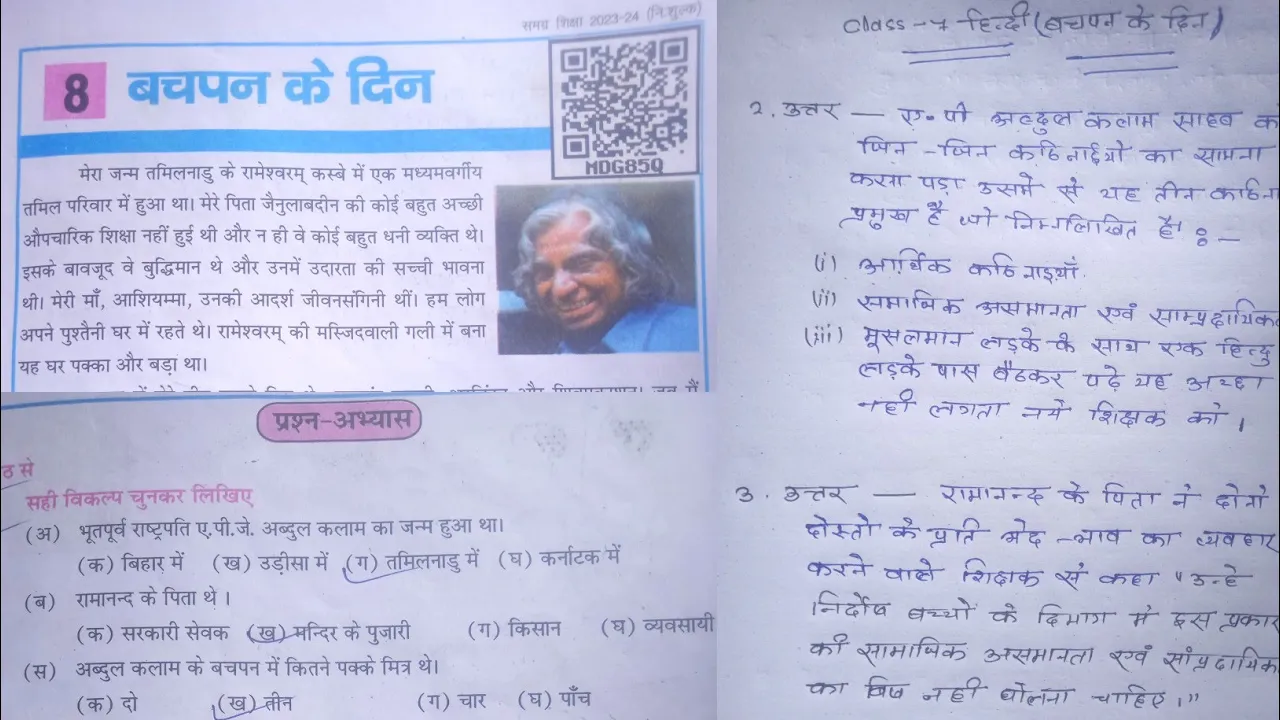 समग्र शिक्षा 2023-24 (नि:शुल्क)
8 बचपन के दिन
MDG85Q
मेरा जन्म तमिलनाडु के रामेश्वरम् कस्बे में एक मध्यमवर्गीय
तमिल परिवार में हुआ था। मेरे पिता जैनुलाबदीन की कोई बहुत अच्छी
औपचारिक शिक्षा नहीं हुई थी और न ही वे कोई बहुत धनी व्यक्ति थे।
इसके बावजूद वे बुद्धिमान थे और उनमें उदारता की सच्ची भावना
थी। मेरी माँ, आशियम्मा, उनकी आदर्श जीवनसंगिनी थीं। हम लोग
अपने पुश्तैनी घर में रहते थे। रामेश्वरम् की मस्जिदवाली गली में बना
यह घर पक्का और बड़ा था।
प्रश्न-अभ्यास
ठ से
सही विकल्प चुनकर लिखिए
(अ) भूतपूर्व राष्ट्रपति ए.पी.जे. अब्दुल कलाम का जन्म हुआ था।
(क) बिहार में (ख) उड़ीसा में (ग) तमिलनाडु में (घ) कर्नाटक में
(ब) रामानन्द के पिता थे ।
(क) सरकारी सेवक (ख) मन्दिर के पुजारी (ग) किसान (घ) व्यवसायी
(स) अब्दुल कलाम के बचपन में कितने पक्के मित्र थे।
(क) दो (ख) तीन (ग) चार (घ) पाँच
Class-7 हिन्दी (बचपन के दिन)
2. उत्तर — ए.पी अब्दुल कलाम साहब क
जिन-जिन कठिनाईयो का सामना
करना पड़ा उसमें से यह तीन कठिन
प्रमुख है जो निम्नलिखित है :—
(i) आर्थिक कठिनाइयाँ
(ii) सामाजिक असमानता एवं साम्प्रदायिक
(iii) मूसलमान लड़के के साथ एक हिन्दु
लड़के पास बैठकर पढ़े यह अच्छा
नही लगता नये शिक्षक को ।
3. उत्तर — रामानन्द के पिता ने दोनो
दोस्तो के प्रति भेद-भाव का व्यवहार
करने वाले शिक्षक से कहा "उन्हे
निर्दोष बच्चों के दिमाग मे इस प्रकार
की सामाजिक असमानता एवं सांप्रदायिक
का विष नही घोलना चाहिए।"